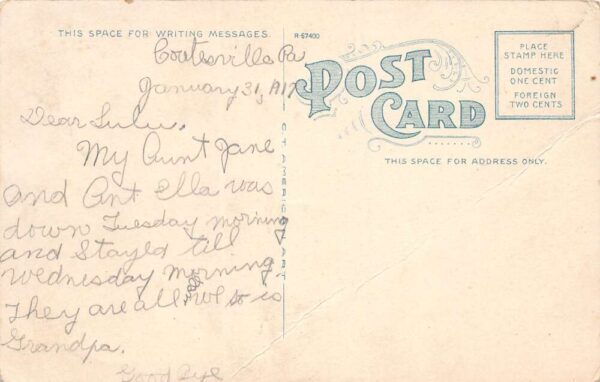 THIS SPACE FOR WRITING MESSAGES
R-57400
Coatesville Pa
January 31, 1917
Dear Lulu.
My Aunt Jane
and Ant Ella was
down Tuesday morning
and Stayed till
Wednesday morning.
They are all so is
Grandpa.
Good Bye
POST
CARD
THIS SPACE FOR ADDRESS ONLY.
PLACE
STAMP HERE
DOMESTIC
ONE CENT
FOREIGN
TWO CENTS